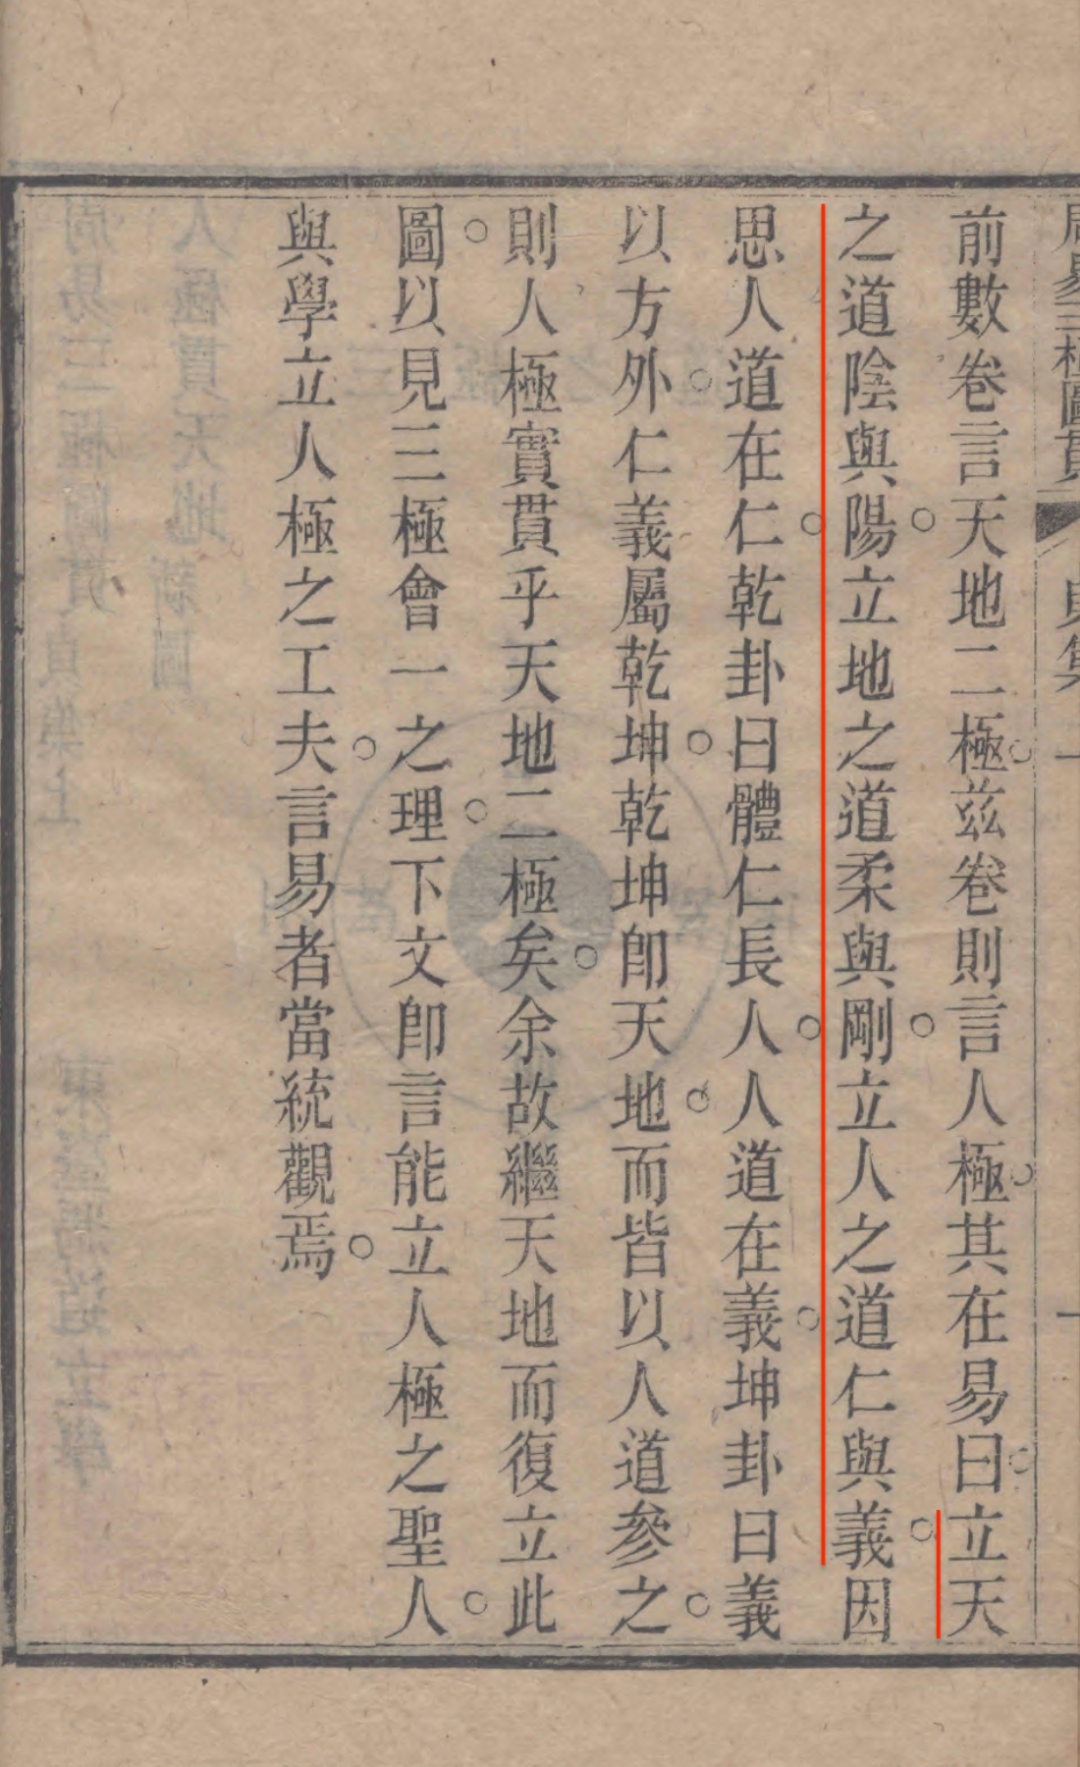 周易三極圖貫 貞集 一 一
前數卷言天地二極兹卷則言人極其在易曰立天
之道陰與陽立地之道柔與剛立人之道仁與義因
思人道在仁乾卦曰體仁長人人道在義坤卦曰義
以方外仁義屬乾坤乾坤卽天地而皆以人道參之
則人極實貫乎天地二極矣余故繼天地而復立此
圖以見三極會一之理下文卽言能立人極之聖人
與學立人極之工夫言易者當統觀焉